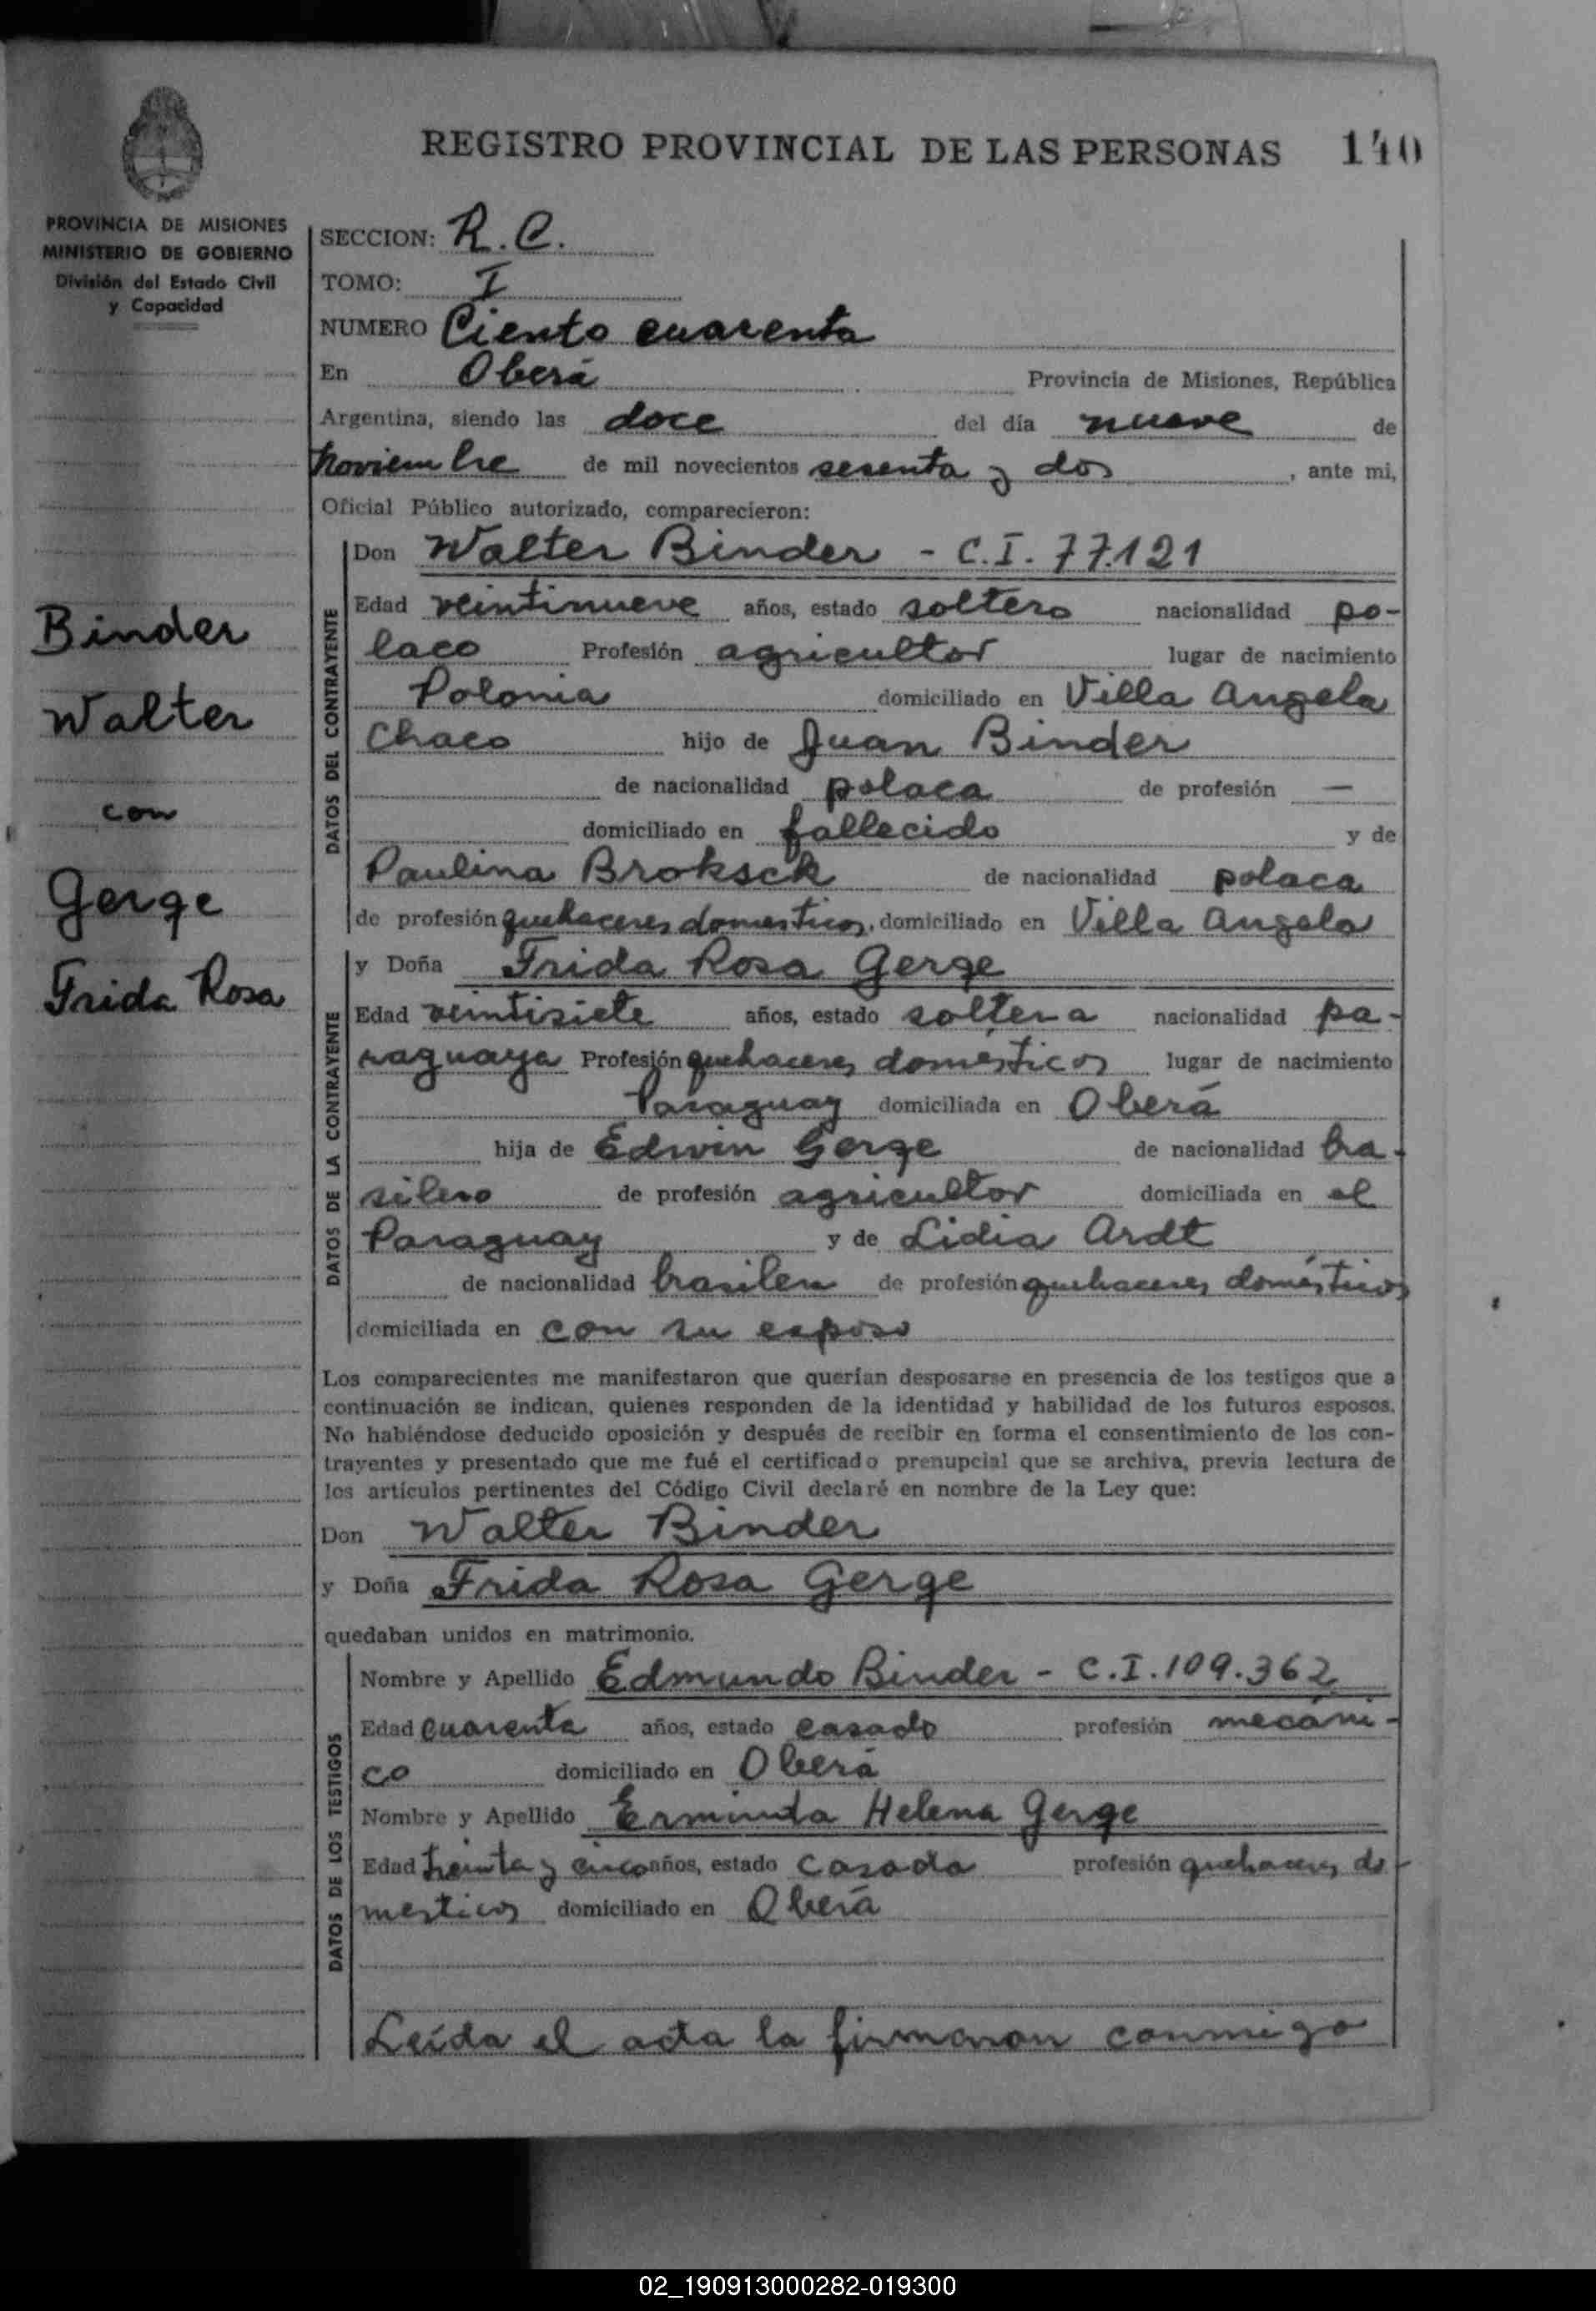 REGISTRO PROVINCIAL DE LAS PERSONAS 140
PROVINCIA DE MISIONES
MINISTERIO DE GOBIERNO
División del Estado Civil
y Capacidad
SECCION: R.C.
TOMO: I
NUMERO Ciento cuarenta
En Oberá Provincia de Misiones, República
Argentina, siendo las doce del día nueve de
noviembre de mil novecientos sesenta y dos, ante mi,
Oficial Público autorizado, comparecieron:
Binder
Walter
con
Gerge
Frida Rosa
DATOS DEL CONTRAYENTE
Don Walter Binder - C.I. 77.121
Edad veintinueve años, estado soltero nacionalidad po-
laco Profesión agricultor lugar de nacimiento
Polonia domiciliado en Villa Angela
Chaco hijo de Juan Binder
de nacionalidad polaca de profesión —
domiciliado en fallecido y de
Paulina Broksch de nacionalidad polaca
de profesión quehaceres domesticos, domiciliado en Villa Angela
DATOS DE LA CONTRAYENTE
y Doña Frida Rosa Gerge
Edad veintisiete años, estado soltera nacionalidad pa-
raguaya Profesión quehaceres domésticos lugar de nacimiento
Paraguay domiciliada en Oberá
hija de Edwin Gerge de nacionalidad bra-
silero de profesión agricultor domiciliada en el
Paraguay y de Lidia Ardt
de nacionalidad brasilera de profesión quehaceres domésticos
domiciliada en con su esposo
Los comparecientes me manifestaron que querían desposarse en presencia de los testigos que a
continuación se indican, quienes responden de la identidad y habilidad de los futuros esposos.
No habiéndose deducido oposición y después de recibir en forma el consentimiento de los con-
trayentes y presentado que me fué el certificado prenupcial que se archiva, previa lectura de
los artículos pertinentes del Código Civil declaré en nombre de la Ley que:
Don Walter Binder
y Doña Frida Rosa Gerge
quedaban unidos en matrimonio.
DATOS DE LOS TESTIGOS
Nombre y Apellido Edmundo Binder - C.I. 109.362
Edad cuarenta años, estado casado profesión mecáni-
co domiciliado en Oberá
Nombre y Apellido Erminda Helena Gerge
Edad treinta y cinco años, estado casada profesión quehaceres do-
mesticos domiciliado en Oberá
Leída el acta la firmaron conmigo
02_190913000282-019300